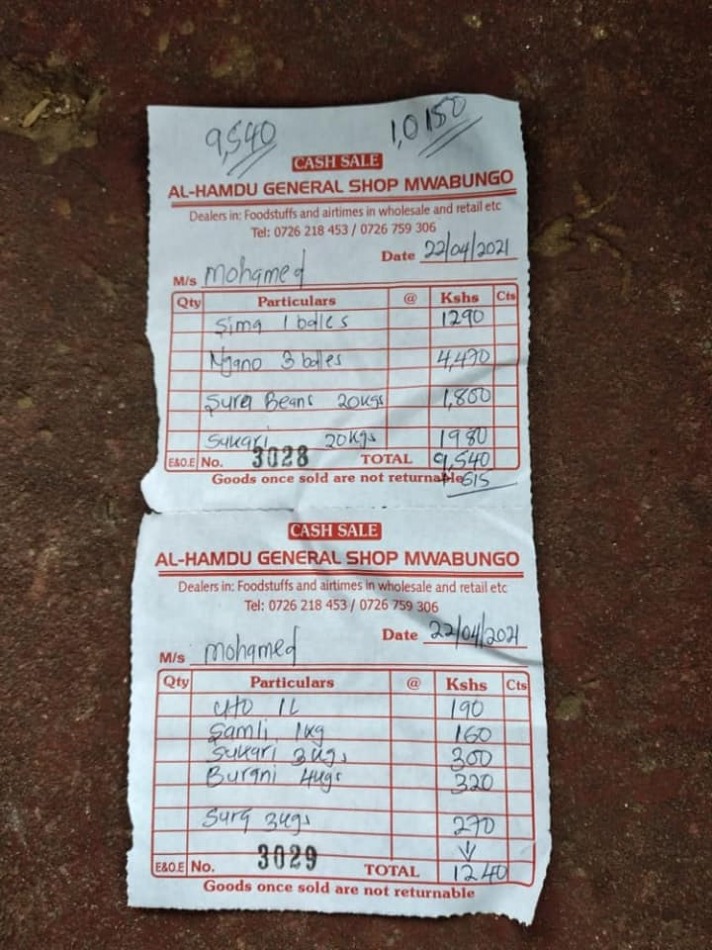 9,540 1,0150
CASH SALE
AL-HAMDU GENERAL SHOP MWABUNGO
Dealers in: Foodstuffs and airtimes in wholesale and retail etc
Tel: 0726 218 453 / 0726 759 306
Date 22/04/2021
M/s mohamed
Qty Particulars @ Kshs Cts
Sima 1 bales 1290
Ngano 3 bales 4,470
Sura Beans 20kgs 1,800
Sukari 20kgs 1980
E&O.E No. 3028 TOTAL 9,540
Goods once sold are not returnable 615
CASH SALE
AL-HAMDU GENERAL SHOP MWABUNGO
Dealers in: Foodstuffs and airtimes in wholesale and retail etc
Tel: 0726 218 453 / 0726 759 306
Date 22/04/2021
M/s mohamed
Qty Particulars @ Kshs Cts
uto 1L 190
Samli 1kg 160
Sukari 3kgs 300
Burani 4kgs 320
Sura 3kgs 270
E&O.E No. 3029 TOTAL 1240
Goods once sold are not returnable